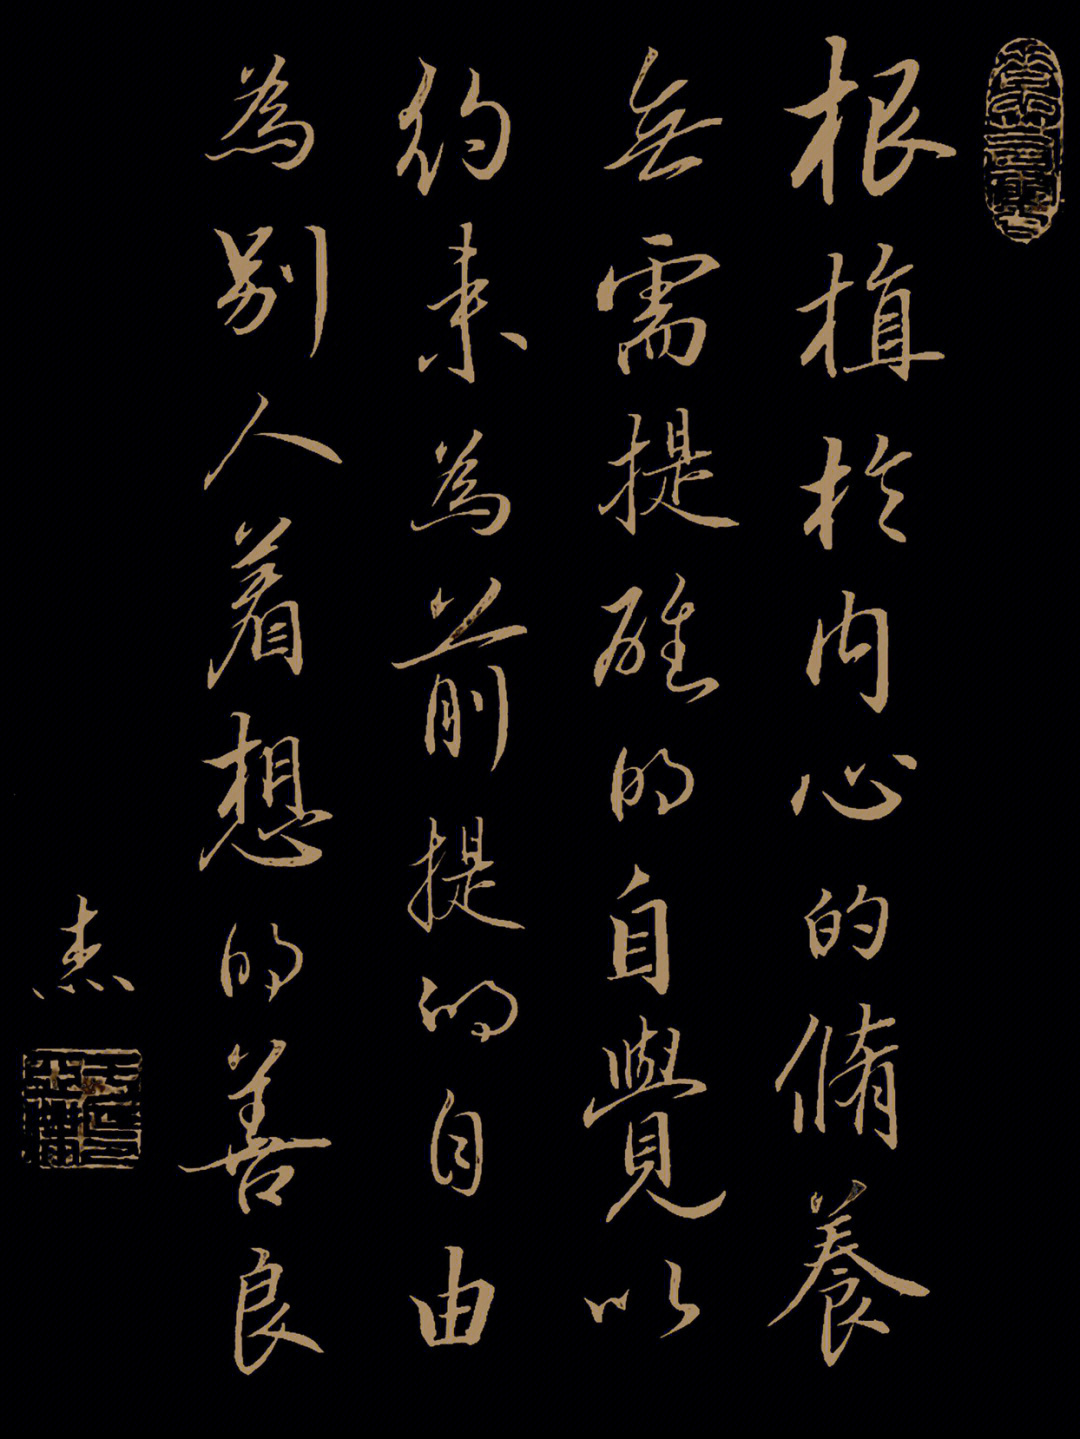 根植於内心的脩養
無需提醒的自覺以
約束為前提的自由
為別人着想的善良
杰